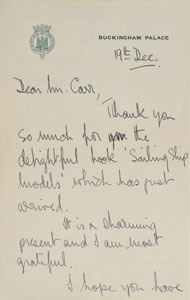 BUCKINGHAM PALACE
19th Dec.
Dear Mr. Carr,
Thank you
so much for the
delightful book 'Sailing Ship
Models' which has just
arrived.
It is a charming
present and I am most
grateful.
I hope you have